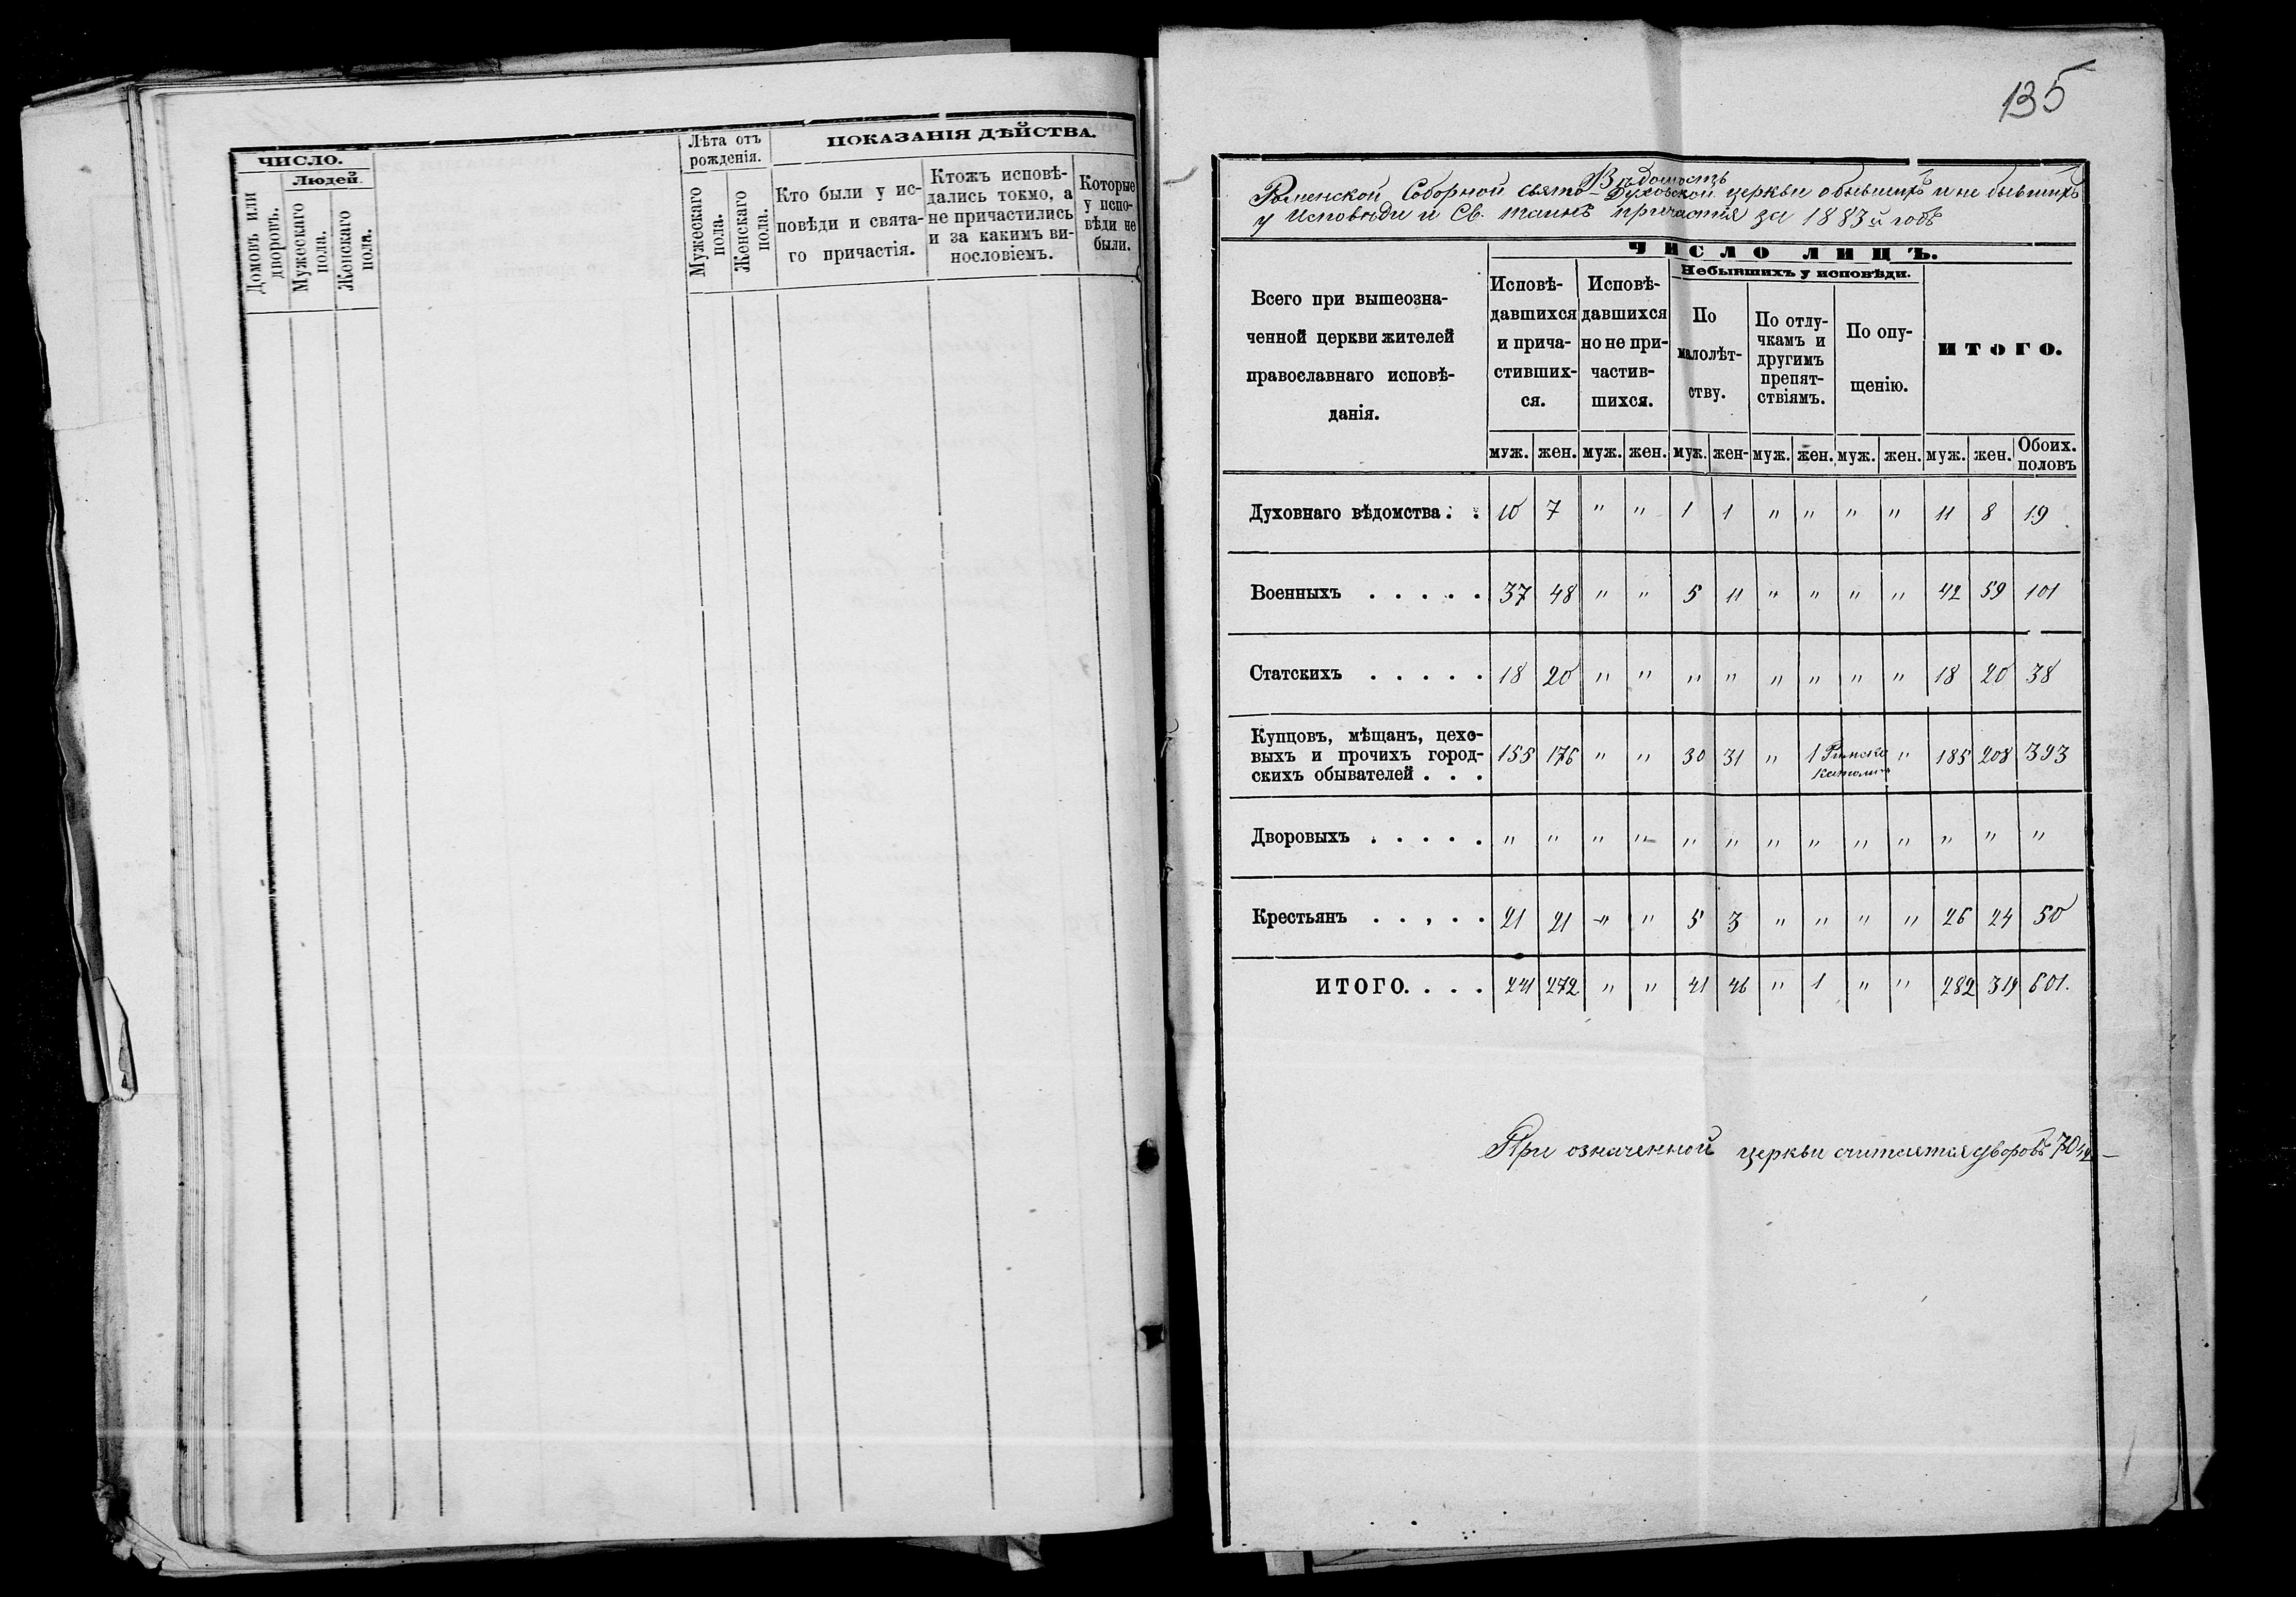 ЧИСЛО.
Людей.
Домовъ или дворовъ.
Мужескаго пола.
Женскаго пола.
Лѣта отъ рожденія.
Мужескаго пола.
Женскаго пола.
ПОКАЗАНІЯ ДѢЙСТВА.
Кто были у ис-
повѣди и свята-
го причастія.
Ктожъ исповѣ-
дались токмо, а
не причастились
и за какимъ ви-
нословіемъ.
Которые
у испо-
вѣди не
были.
135
Вѣдомость
Роменской Соборной Свято-Духовской церкви о бывшихъ и не бывшихъ
у Исповѣди и Св. таинъ причастія за 1883й годъ
Всего при вышеозна-
ченной церкви жителей
православнаго исповѣ-
данія.
ЧИСЛО ЛИЦЪ.
Исповѣ-
давшихся
и прича-
стивших-
ся.
Исповѣ-
давшихся
но не при-
частив-
шихся.
Небывшихъ у исповѣди.
По
малолѣт-
ству.
По отлу-
чкамъ и
другимъ
препят-
ствіямъ.
По опу-
щенію.
ИТОГО.
муж. жен. муж. жен. муж. жен- муж. жен. муж. жен. муж. жен. Обоих. половъ
Духовнаго вѣдомства . . 10 7 " " 1 1 " " " " 11 8 19
Военныхъ . . . . . 37 48 " " 5 11 " " " " 42 59 101
Статскихъ . . . . . 18 20 " " " " " " " " 18 20 38
Купцовъ, мѣщанъ, цехо-
выхъ и прочихъ город-
скихъ обывателей . . . 155 176 " " 30 31 " 1 Римско " 185 208 393
Дворовыхъ . . . . . " " " " " " " " " " " " "
Крестьянъ . . . . . 21 21 " " 5 3 " " " " 26 24 50
ИТОГО. . . . 241 272 " " 41 46 " 1 " " 282 319 601.
При означенной церкви считается дворовъ 70